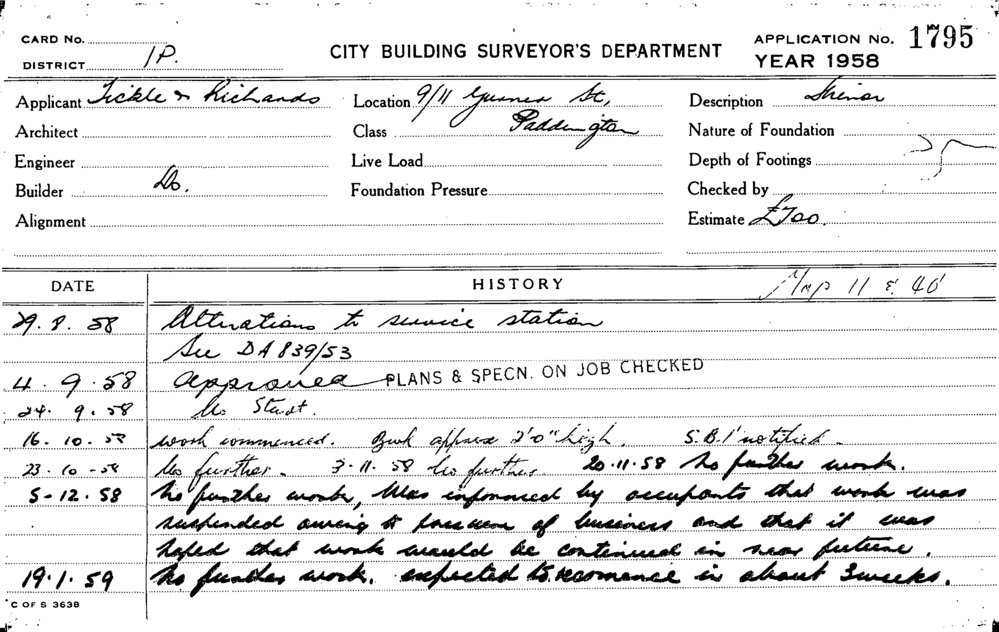 CARD No.
DISTRICT 1P.
CITY BUILDING SURVEYOR'S DEPARTMENT
APPLICATION No. 1795
YEAR 1958
Applicant Tickle & Richards
Location 9/11 Gurner St,
Paddington
Description Minor
Architect
Class
Nature of Foundation
Engineer
Live Load
Depth of Footings
Builder Do.
Foundation Pressure
Checked by
Alignment
Estimate £700.
DATE
HISTORY
Map 11 & 40
29. 8. 58 Alterations to service station
See DA 839/53
4. 9. 58 Approved PLANS & SPECN. ON JOB CHECKED
24. 9. 58 No Start.
16. 10. 58 work commenced. Bwk approx 2'0" high. S.B.I notified
23. 10 - 58 No further. 3.11.58 No further 20.11.58 No further work.
5-12.58 No further work, Was informed by occupants that work was
suspended owing to pressure of business and that it was
hoped that work would be continued in near future.
19.1.59 No further work. expected to recomence in about 3 weeks.
C OF S 3638